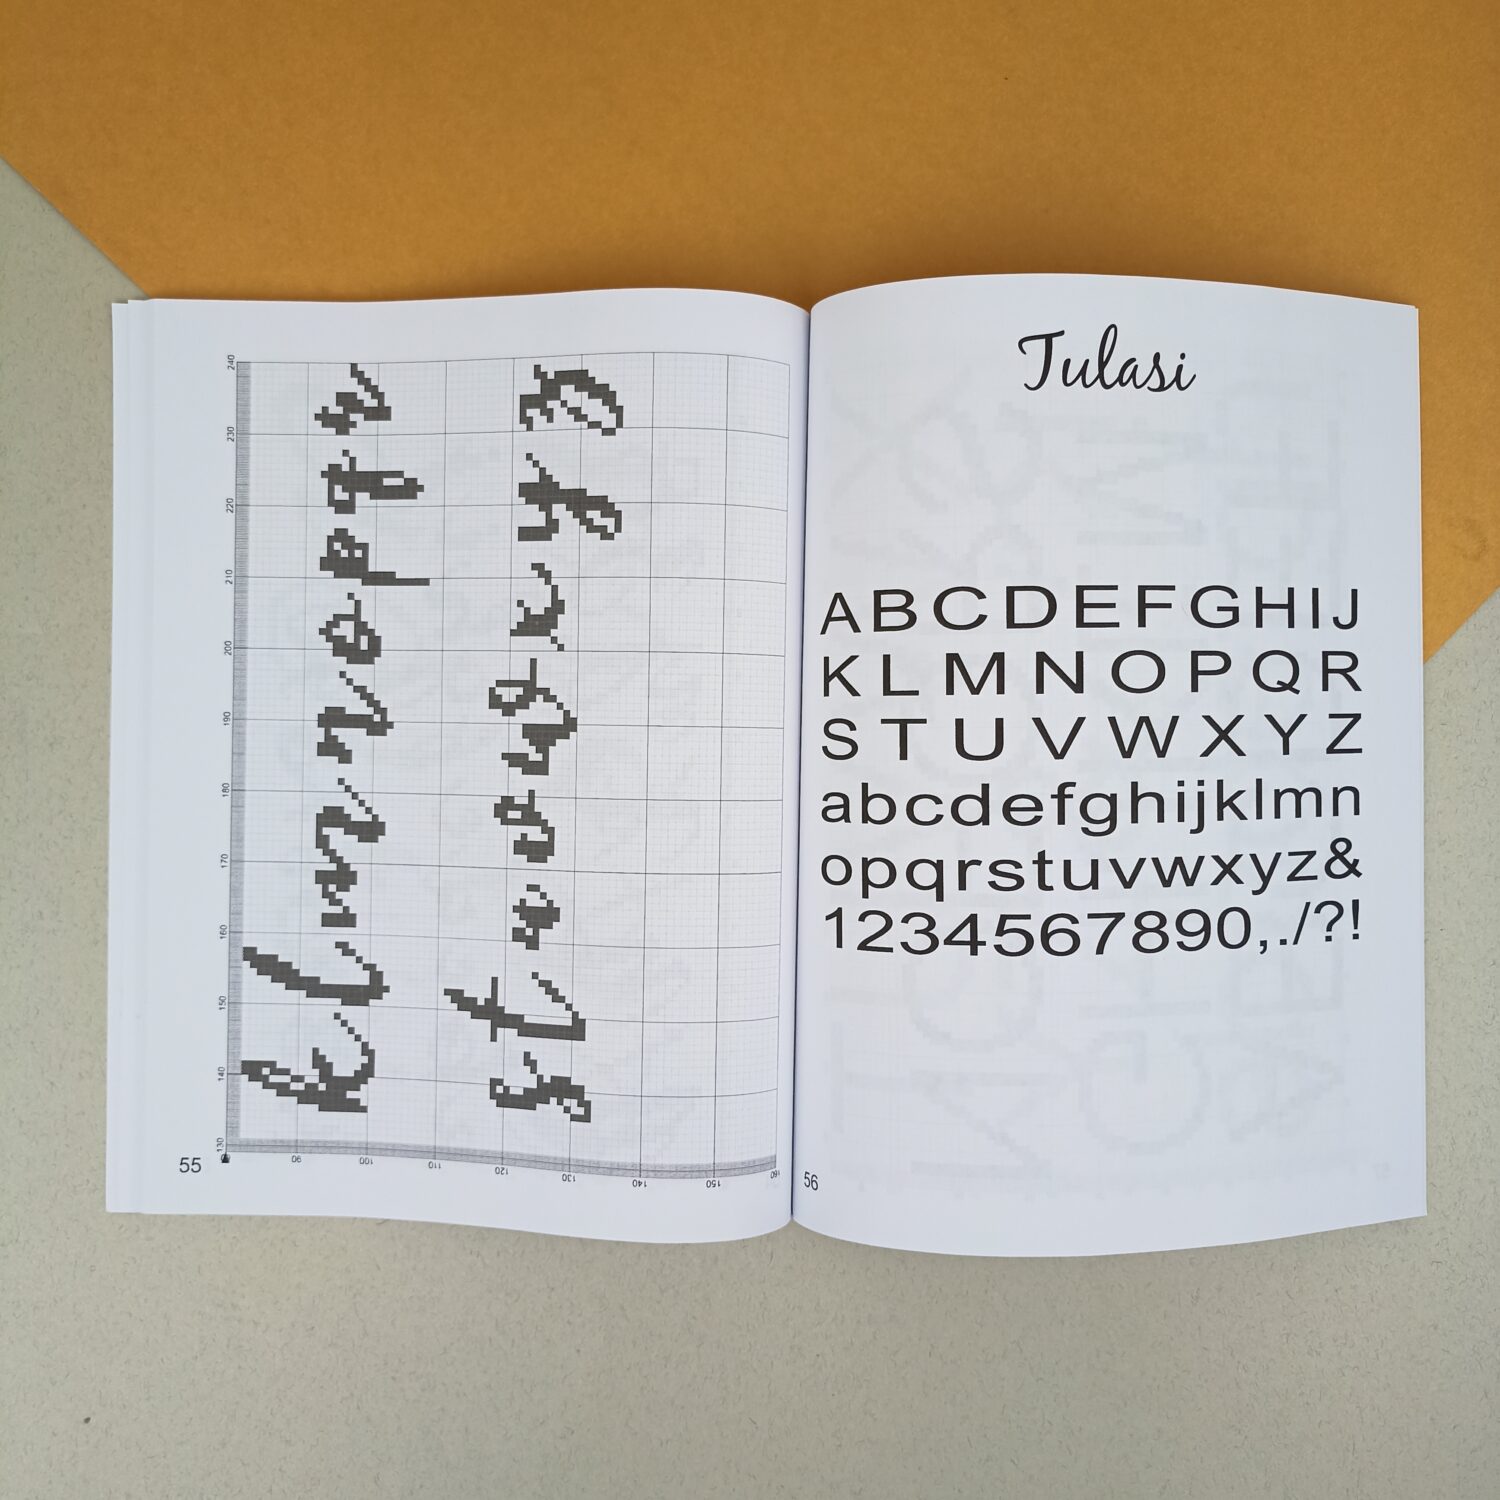 130 140 150 160 170 180 190 200 210 220 230 240
k l m n o p q r
s t u v w x y z
90 100 110 120 130 140 150 160
55
Tulasi
ABCDEFGHIJ
KLMNOPQR
STUVWXYZ
abcdefghijklmn
opqrstuvwxyz&
1234567890,./?!
56